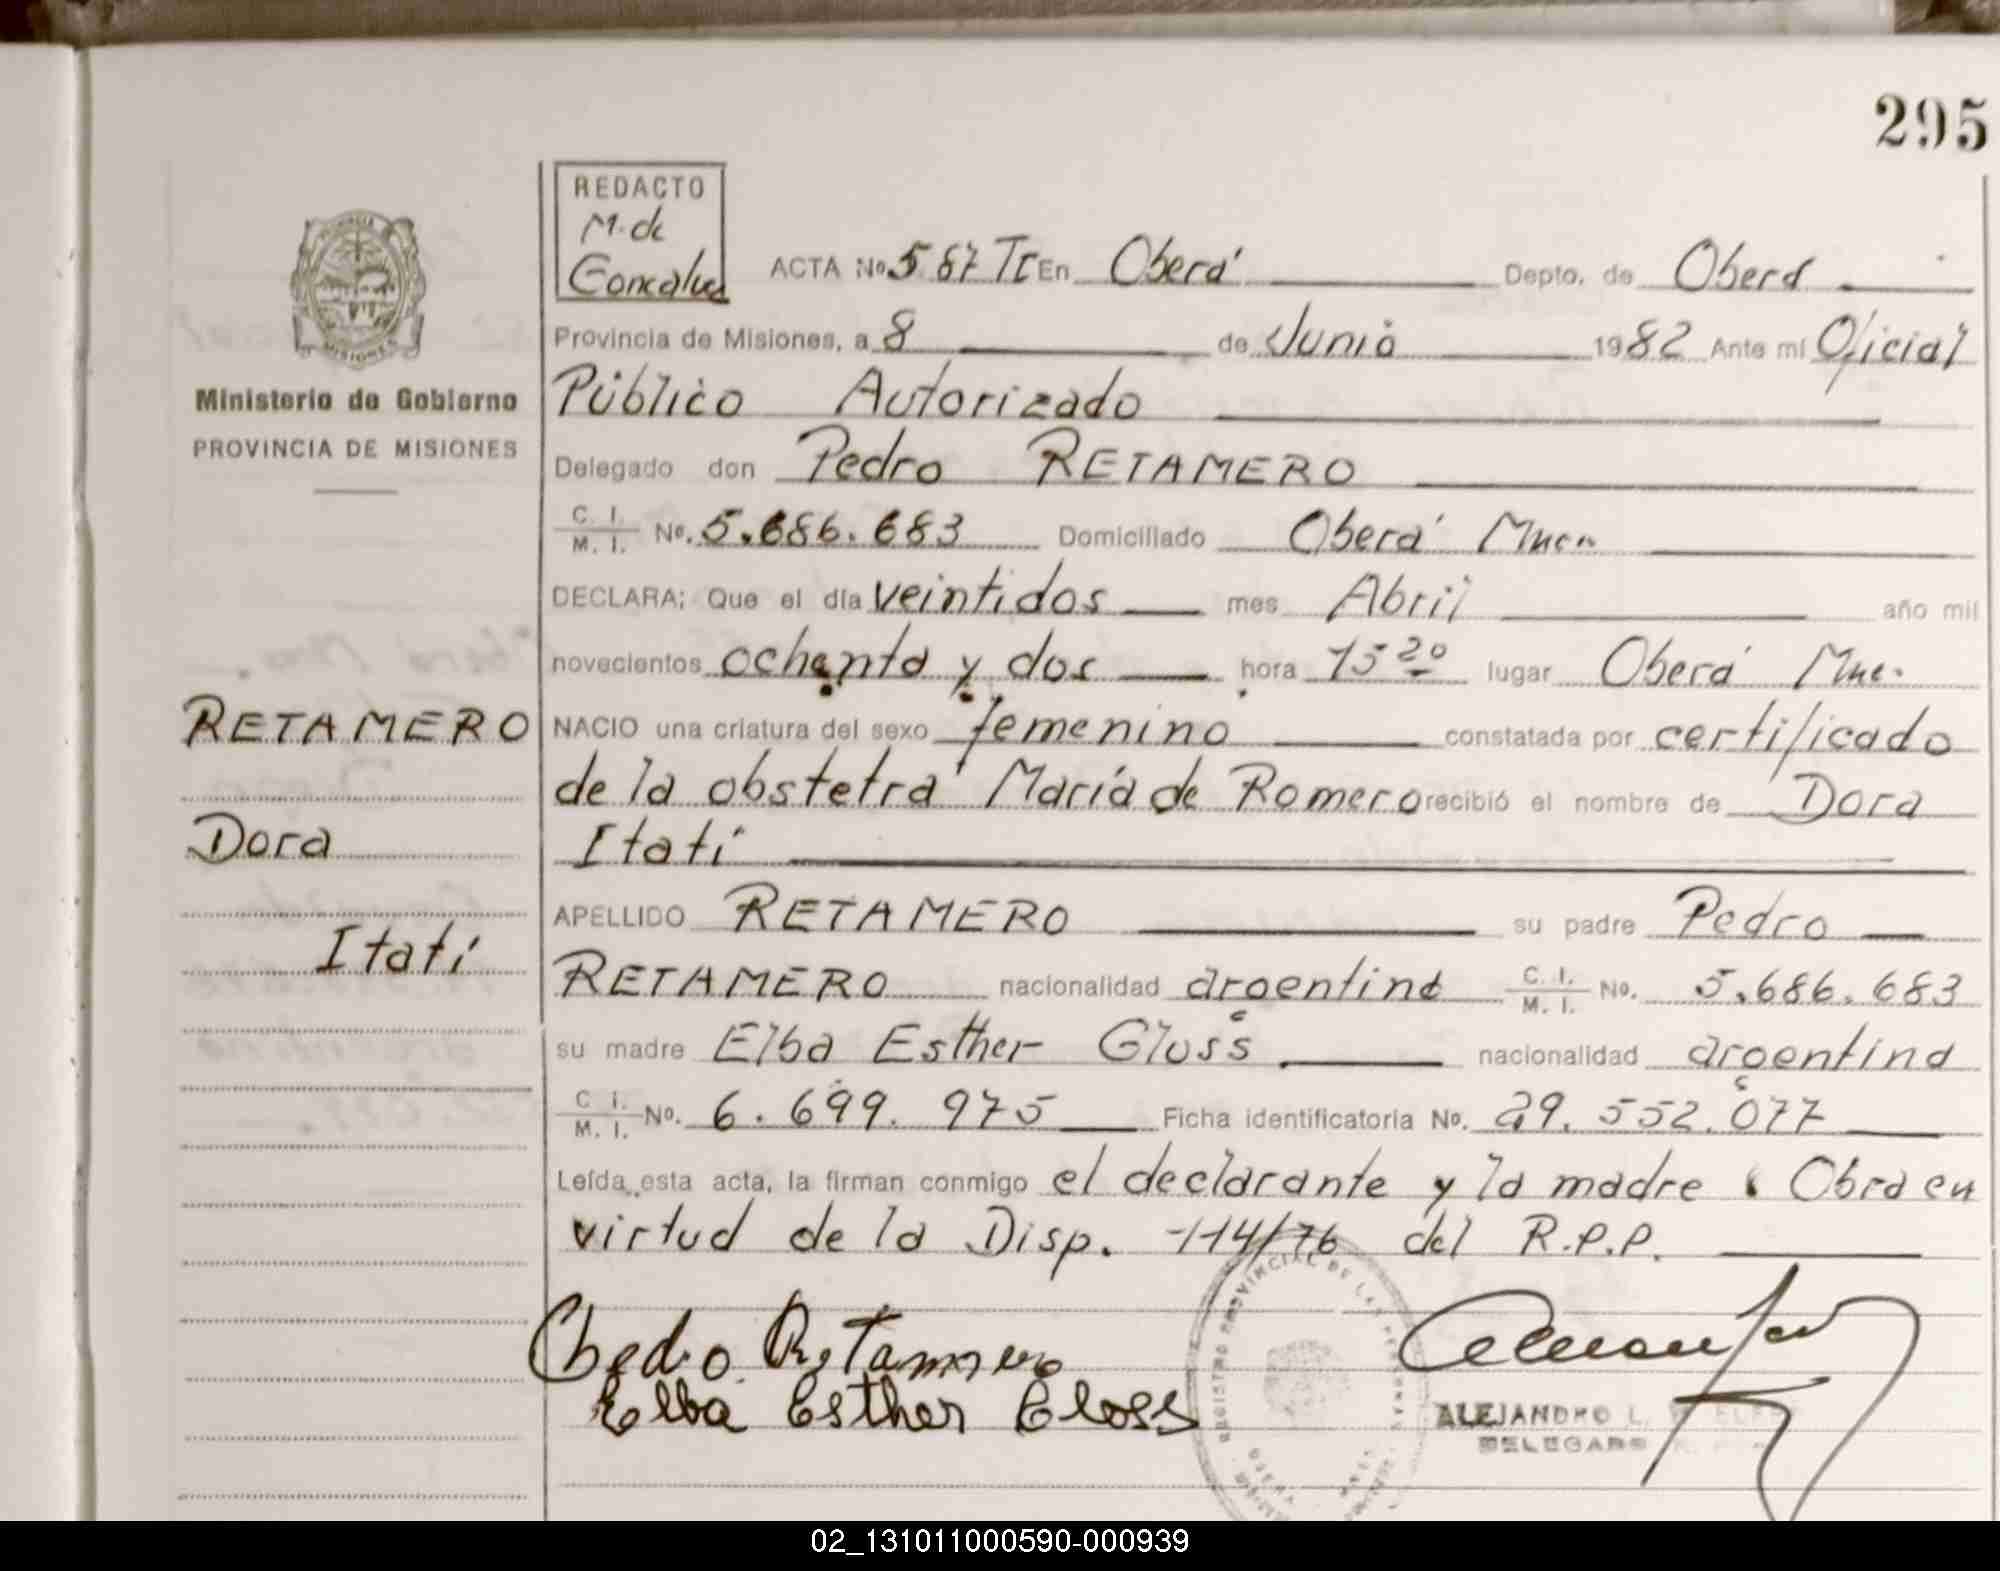 295
REDACTO
M. de
Goncalvez
PROVINCIA
MISIONES
Ministerio de Gobierno
PROVINCIA DE MISIONES
ACTA No. 587 TI En Oberá Depto. de Oberá
Provincia de Misiones, a 8 de Junio 1982 Ante mí Oficial
Público Autorizado
Delegado don Pedro RETAMERO
C. I. / M. I. No. 5.686.683 Domiciliado Oberá Mnes
DECLARA; Que el día veintidos mes Abril año mil
novecientos ochenta y dos hora 15 20 lugar Oberá Mnes.
NACIO una criatura del sexo femenino constatada por certificado
de la obstetra María de Romero recibió el nombre de Dora
Itatí
APELLIDO RETAMERO su padre Pedro
RETAMERO nacionalidad argentino C. I. / M. I. No. 5.686.683
su madre Elba Esther Gloss nacionalidad argentina
C. I. / M. I. No. 6.699.975 Ficha identificatoria No. 29.552.077
Leída esta acta, la firman conmigo el declarante y la madre. Obra en
virtud de la Disp. 114/76 del R.P.P.
RETAMERO
Dora
Itatí
Phedro Retamero
Elba Esther Gloss
REGISTRO PROVINCIAL DE LAS PERSONAS
OBERA
ALEJANDRO L.
DELEGADO
02_131011000590-000939